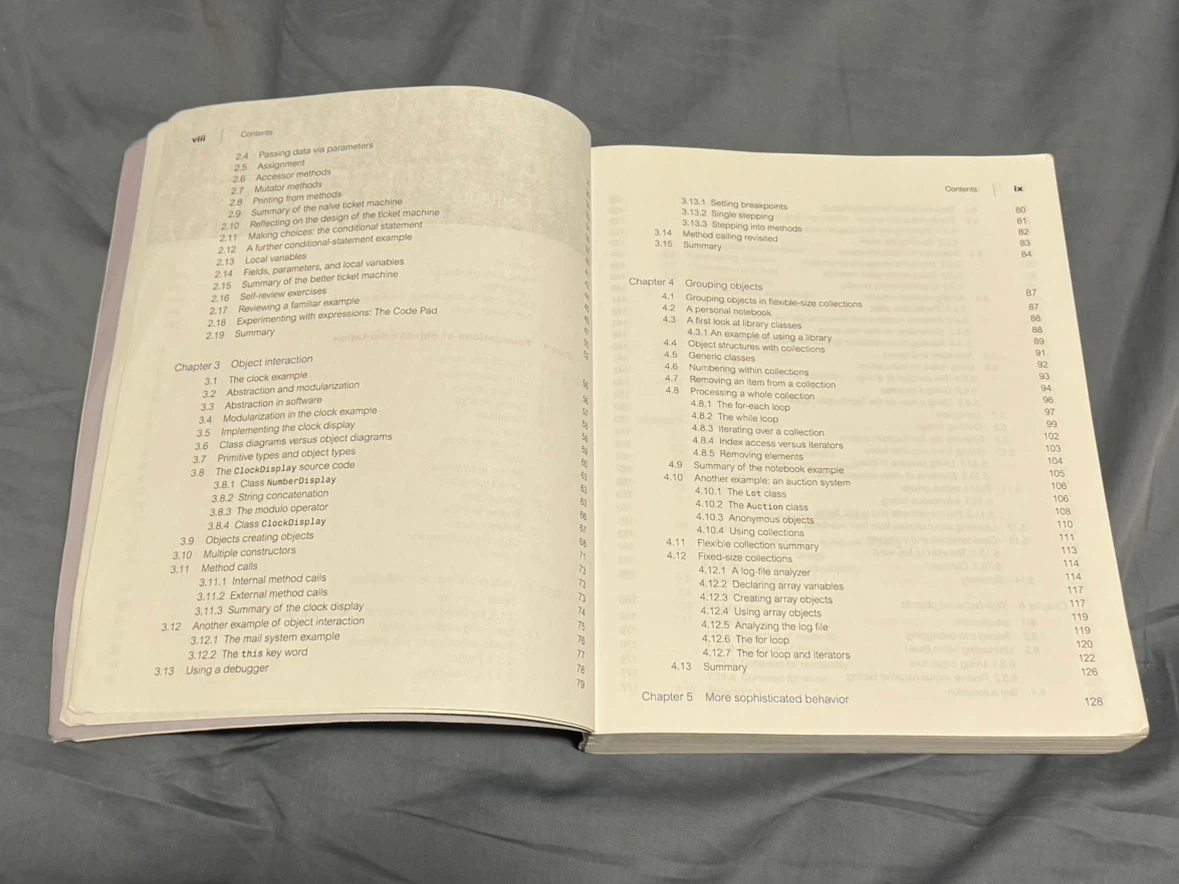 viii Contents
2.4 Passing data via parameters
2.5 Assignment
2.6 Accessor methods
2.7 Mutator methods
2.8 Printing from methods
2.9 Summary of the naïve ticket machine
2.10 Reflecting on the design of the ticket machine
2.11 Making choices: the conditional statement
2.12 A further conditional-statement example
2.13 Local variables
2.14 Fields, parameters, and local variables
2.15 Summary of the better ticket machine
2.16 Self-review exercises
2.17 Reviewing a familiar example
2.18 Experimenting with expressions: The Code Pad
2.19 Summary
Chapter 3 Object interaction 56
3.1 The clock example 56
3.2 Abstraction and modularization 57
3.3 Abstraction in software 58
3.4 Modularization in the clock example 58
3.5 Implementing the clock display 59
3.6 Class diagrams versus object diagrams 60
3.7 Primitive types and object types
3.8 The ClockDisplay source code 63
3.8.1 Class NumberDisplay 63
3.8.2 String concatenation 66
3.8.3 The modulo operator 67
3.8.4 Class ClockDisplay 68
3.9 Objects creating objects 71
3.10 Multiple constructors 73
3.11 Method calls 73
3.11.1 Internal method calls 73
3.11.2 External method calls 74
3.11.3 Summary of the clock display 75
3.12 Another example of object interaction 76
3.12.1 The mail system example 77
3.12.2 The this key word 78
3.13 Using a debugger 79
Contents ix
3.13.1 Setting breakpoints 80
3.13.2 Single stepping 81
3.13.3 Stepping into methods 82
3.14 Method calling revisited 83
3.15 Summary 84
Chapter 4 Grouping objects 87
4.1 Grouping objects in flexible-size collections 87
4.2 A personal notebook 88
4.3 A first look at library classes 88
4.3.1 An example of using a library 89
4.4 Object structures with collections 91
4.5 Generic classes 92
4.6 Numbering within collections 93
4.7 Removing an item from a collection 94
4.8 Processing a whole collection 96
4.8.1 The for-each loop 97
4.8.2 The while loop 99
4.8.3 Iterating over a collection 102
4.8.4 Index access versus iterators 103
4.8.5 Removing elements 104
4.9 Summary of the notebook example 105
4.10 Another example: an auction system 106
4.10.1 The Lot class 106
4.10.2 The Auction class 108
4.10.3 Anonymous objects 110
4.10.4 Using collections 111
4.11 Flexible collection summary 113
4.12 Fixed-size collections 114
4.12.1 A log-file analyzer 114
4.12.2 Declaring array variables 117
4.12.3 Creating array objects 117
4.12.4 Using array objects 119
4.12.5 Analyzing the log file 119
4.12.6 The for loop 120
4.12.7 The for loop and iterators 122
4.13 Summary 126
Chapter 5 More sophisticated behavior 128